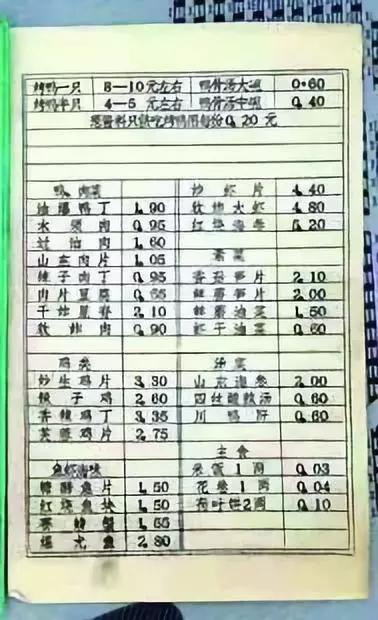 烤鸭一只 8—10元左右 鸭骨汤大碗 0.60
烤鸭半只 4—5元左右 鸭骨汤中碗 0.40
葱酱料只供吃烤鸭用每份0.20元
鸭、肉菜
油爆鸭丁 1.90
木须肉 0.95
过油肉 1.60
山东肉片 1.05
辣子肉丁 0.95
肉片豆腐 0.65
干炸里脊 2.10
软炸肉 0.90
鸡类
炒生鸡片 3.30
辣子鸡 2.60
香辣鸡丁 3.35
芙蓉鸡片 2.75
鱼虾海味
糟醉鱼片 1.50
红烧鱼块 1.50
1.65
爆尤鱼 2.80
炒虾片 4.40
软炸大虾 4.80
红烧海参 5.20
素菜
笋片 2.10
鲜蘑笋片 2.00
鲜蘑油菜 1.50
虾干油菜 0.60
汤菜
山东海参 2.00
四丝酸辣汤 0.60
川鸭肝 0.60
主食
米饭1两 0.03
花卷1两 0.04
荷叶饼2两 0.10